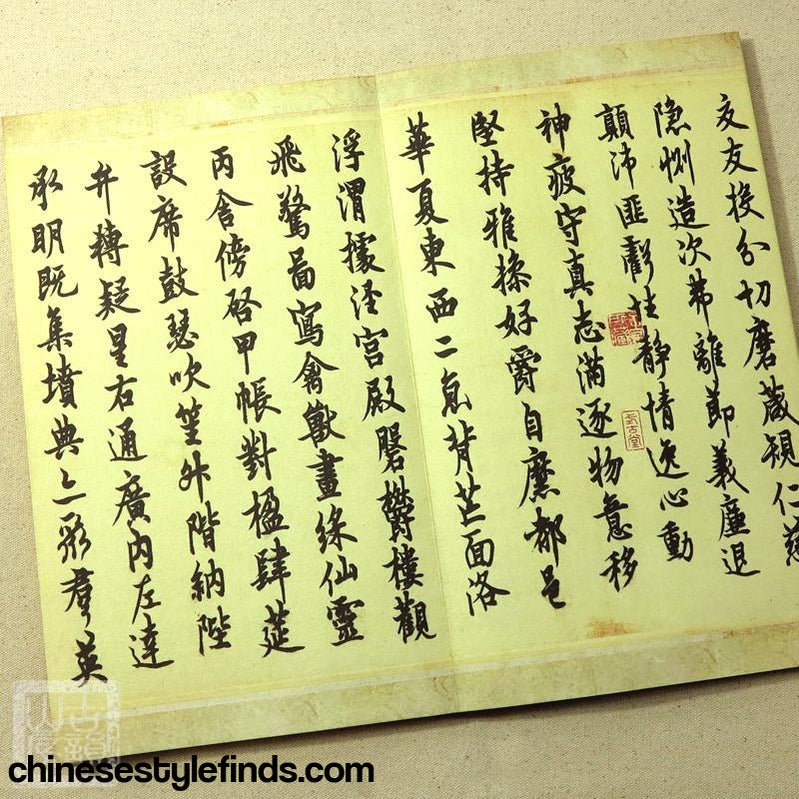 交友投分切磨箴規仁慈
隐惻造次弗離節義廉退
顛沛匪虧性靜情逸心動
神疲守真志滿逐物意移
堅持雅操好爵自縻都邑
華夏東西二京背芒面洛
浮渭據涇宮殿磐欝樓觀
飛驚啚寫禽獸畫綵仙靈
丙舍傍啓甲帳對楹肆筵
設席鼓瑟吹笙升階納陛
弁轉疑星右通廣內左達
承明既集墳典亦聚羣英
chinesestylefinds.com